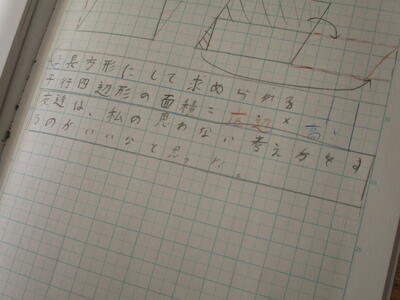 長方形にして求められる
平行四辺形の面積=底辺×高さ
友達は、私の思わない考えがをす
るのがいいなて思